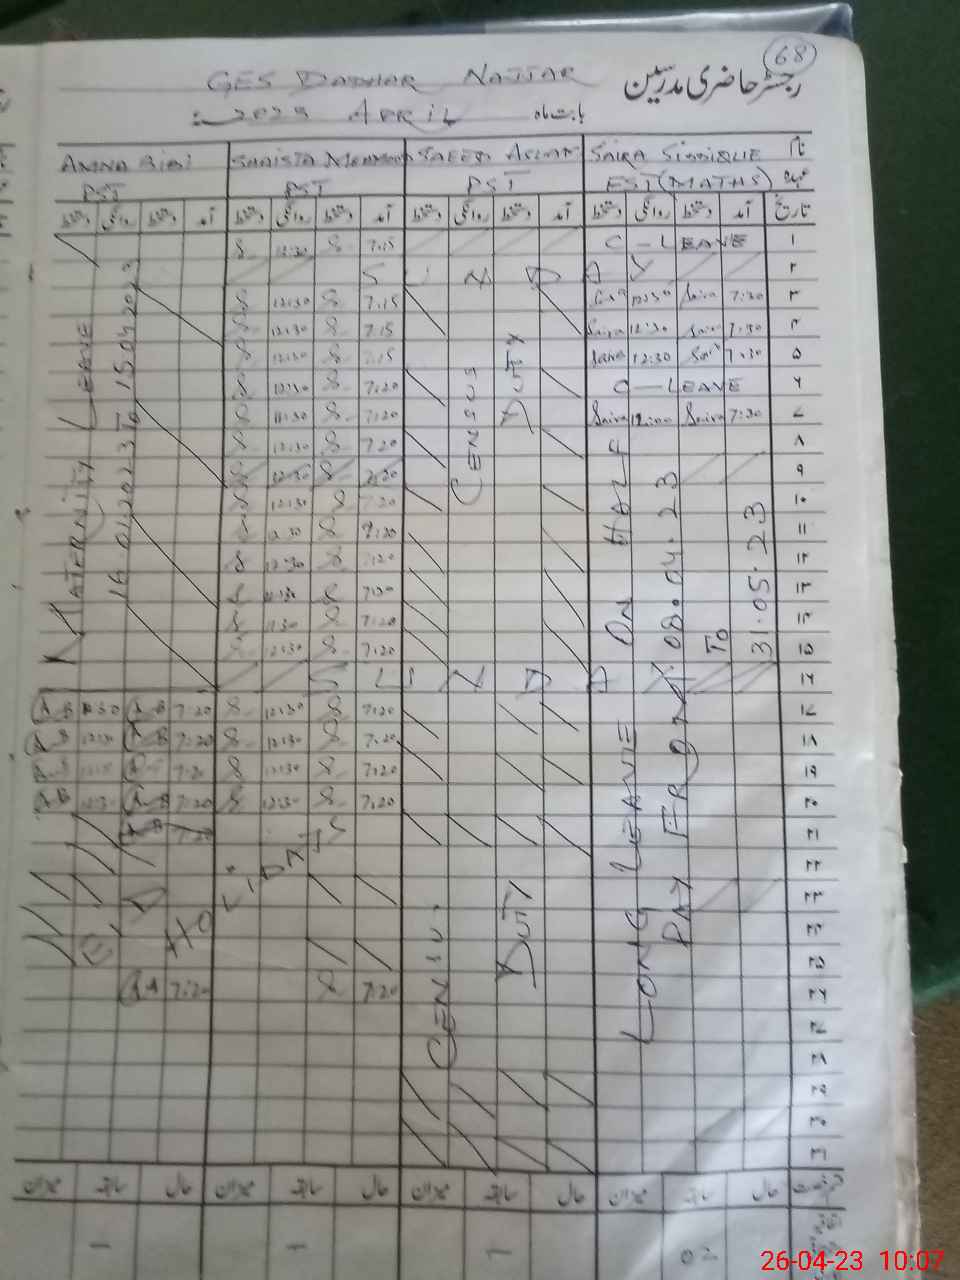 68
GES DADHAR NAJJAR رجسٹر حاضری مدرسین
2023 APRIL بابت ماہ
AMNA BIBI SHAISTA MEHMOOD SAEED ASLAM SAIRA SIDDIQUE نام
PST PST PST EST (MATHS) عہدہ
دستخط روانگی دستخط آمد دستخط روانگی دستخط آمد دستخط روانگی دستخط آمد دستخط روانگی دستخط آمد تاریخ
12:30 7:15 C-LEAVE ۱
SUNDAY ۲
12:30 7:15 12:30 Saira 7:30 ۳
12:30 7:15 Saira 12:30 Saira 7:30 ۴
12:30 7:15 Saira 12:30 7:30 ۵
12:30 7:20 C-LEAVE ۶
7:20 Saira 12:00 Saira 7:30 ۷
12:30 7:20 ۸
12:30 7:20 ۹
12:30 7:20 ۱۰
12:30 7:20 ۱۱
12:30 7:20 ۱۲
7:20 ۱۳
7:20 ۱۴
12:30 7:20 ۱۵
SUNDAY ۱۶
MATERNITY LEAVE
16.01.2023 To 15.04.2023
CENSUS
DUTY
LONG LEAVE ON HALF
PAY FROM 08.04.23
To
31.05.23
A B 12:30 A B 7:20 12:30 7:20 ۱۷
A B 12:30 A B 7:20 12:30 7:20 ۱۸
7:20 12:30 7:20 ۱۹
A B 12:30 A B 7:20 12:30 7:20 ۲۰
7:20 ۲۱
۲۲
۲۳
۲۴
۲۵
7:20 7:20 ۲۶
۲۷
۲۸
۲۹
۳۰
۳۱
HOLIDAYS
CENSUS
DUTY
میزان سابقہ حال میزان سابقہ حال میزان سابقہ حال میزان سابقہ حال
26-04-23 10:07